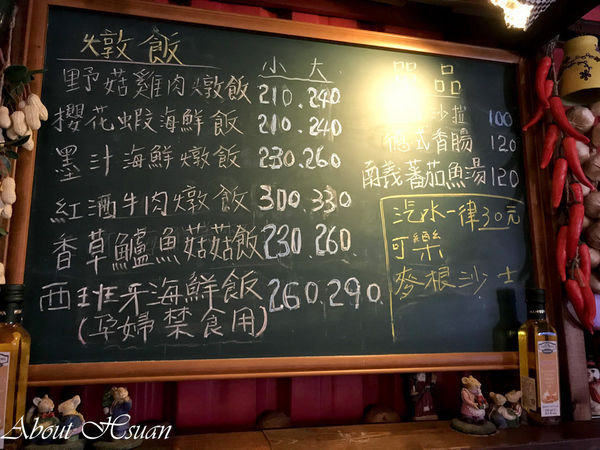 燉飯
小 大
野菇雞肉燉飯 210.240
櫻花蝦海鮮飯 210.240
墨汁海鮮燉飯 230.260
紅酒牛肉燉飯 300.330
香草鱸魚菇菇飯 230.260
西班牙海鮮飯 260.290
(孕婦禁食用)
單品
沙拉 100
德式香腸 120
南義蕃茄魚湯 120
汽水一律30元
可樂
麥根沙士
About Hsuan